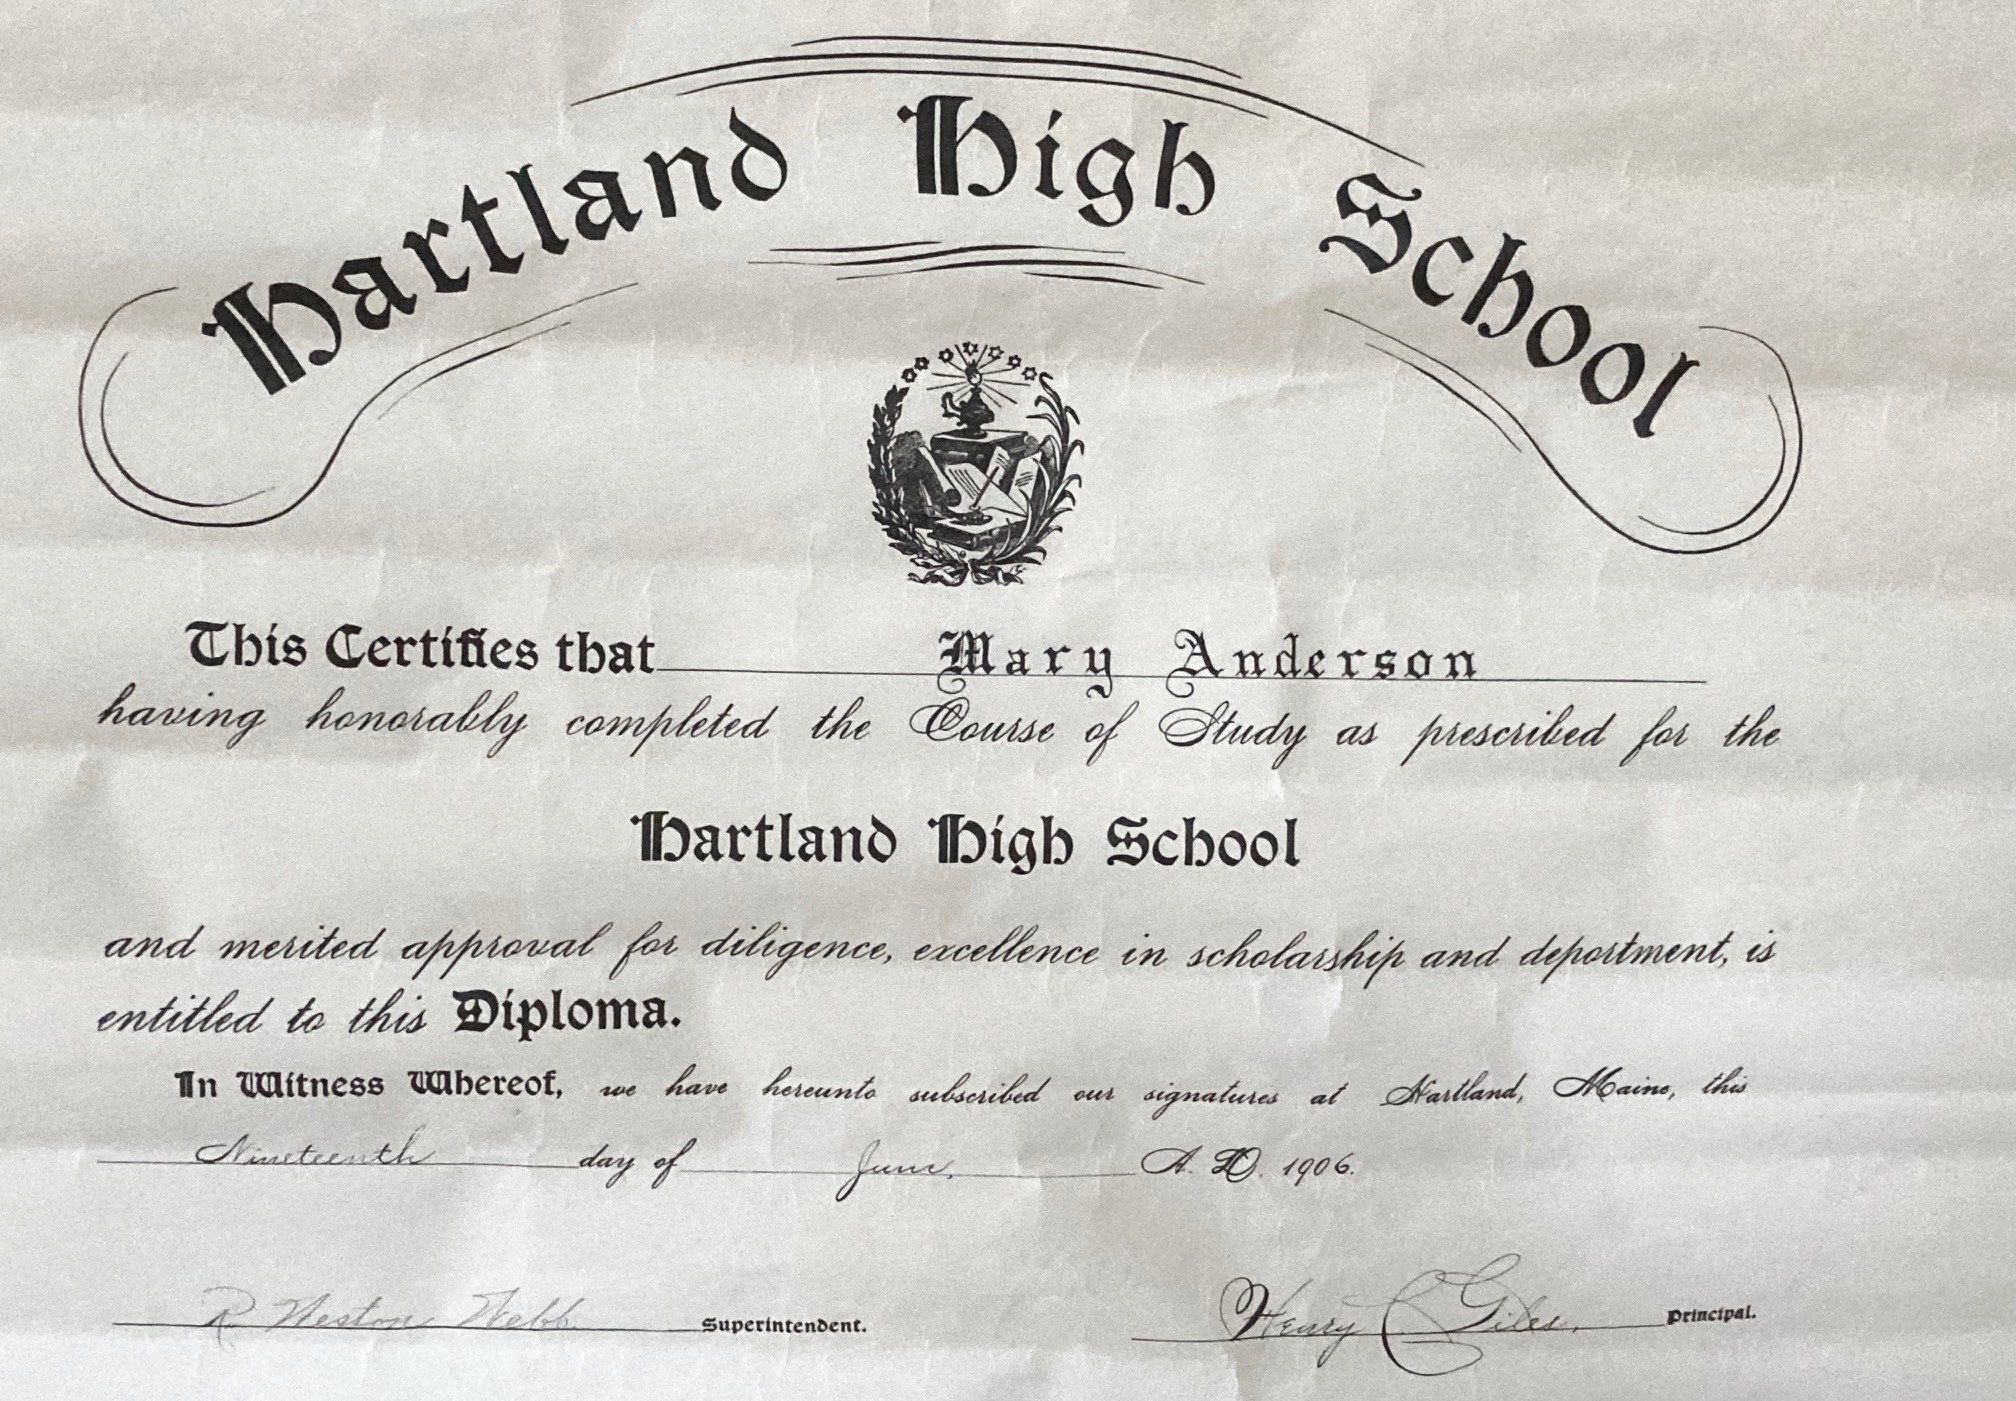 Hartland High School
This Certifies that Mary Anderson
having honorably completed the Course of Study as prescribed for the
Hartland High School
and merited approval for diligence, excellence in scholarship and deportment, is
entitled to this Diploma.
In Witness Whereof, we have hereunto subscribed our signatures at Hartland, Maine, this
Nineteenth day of June, A. D. 1906.
R Weston Webb Superintendent. Henry C Giles, Principal.